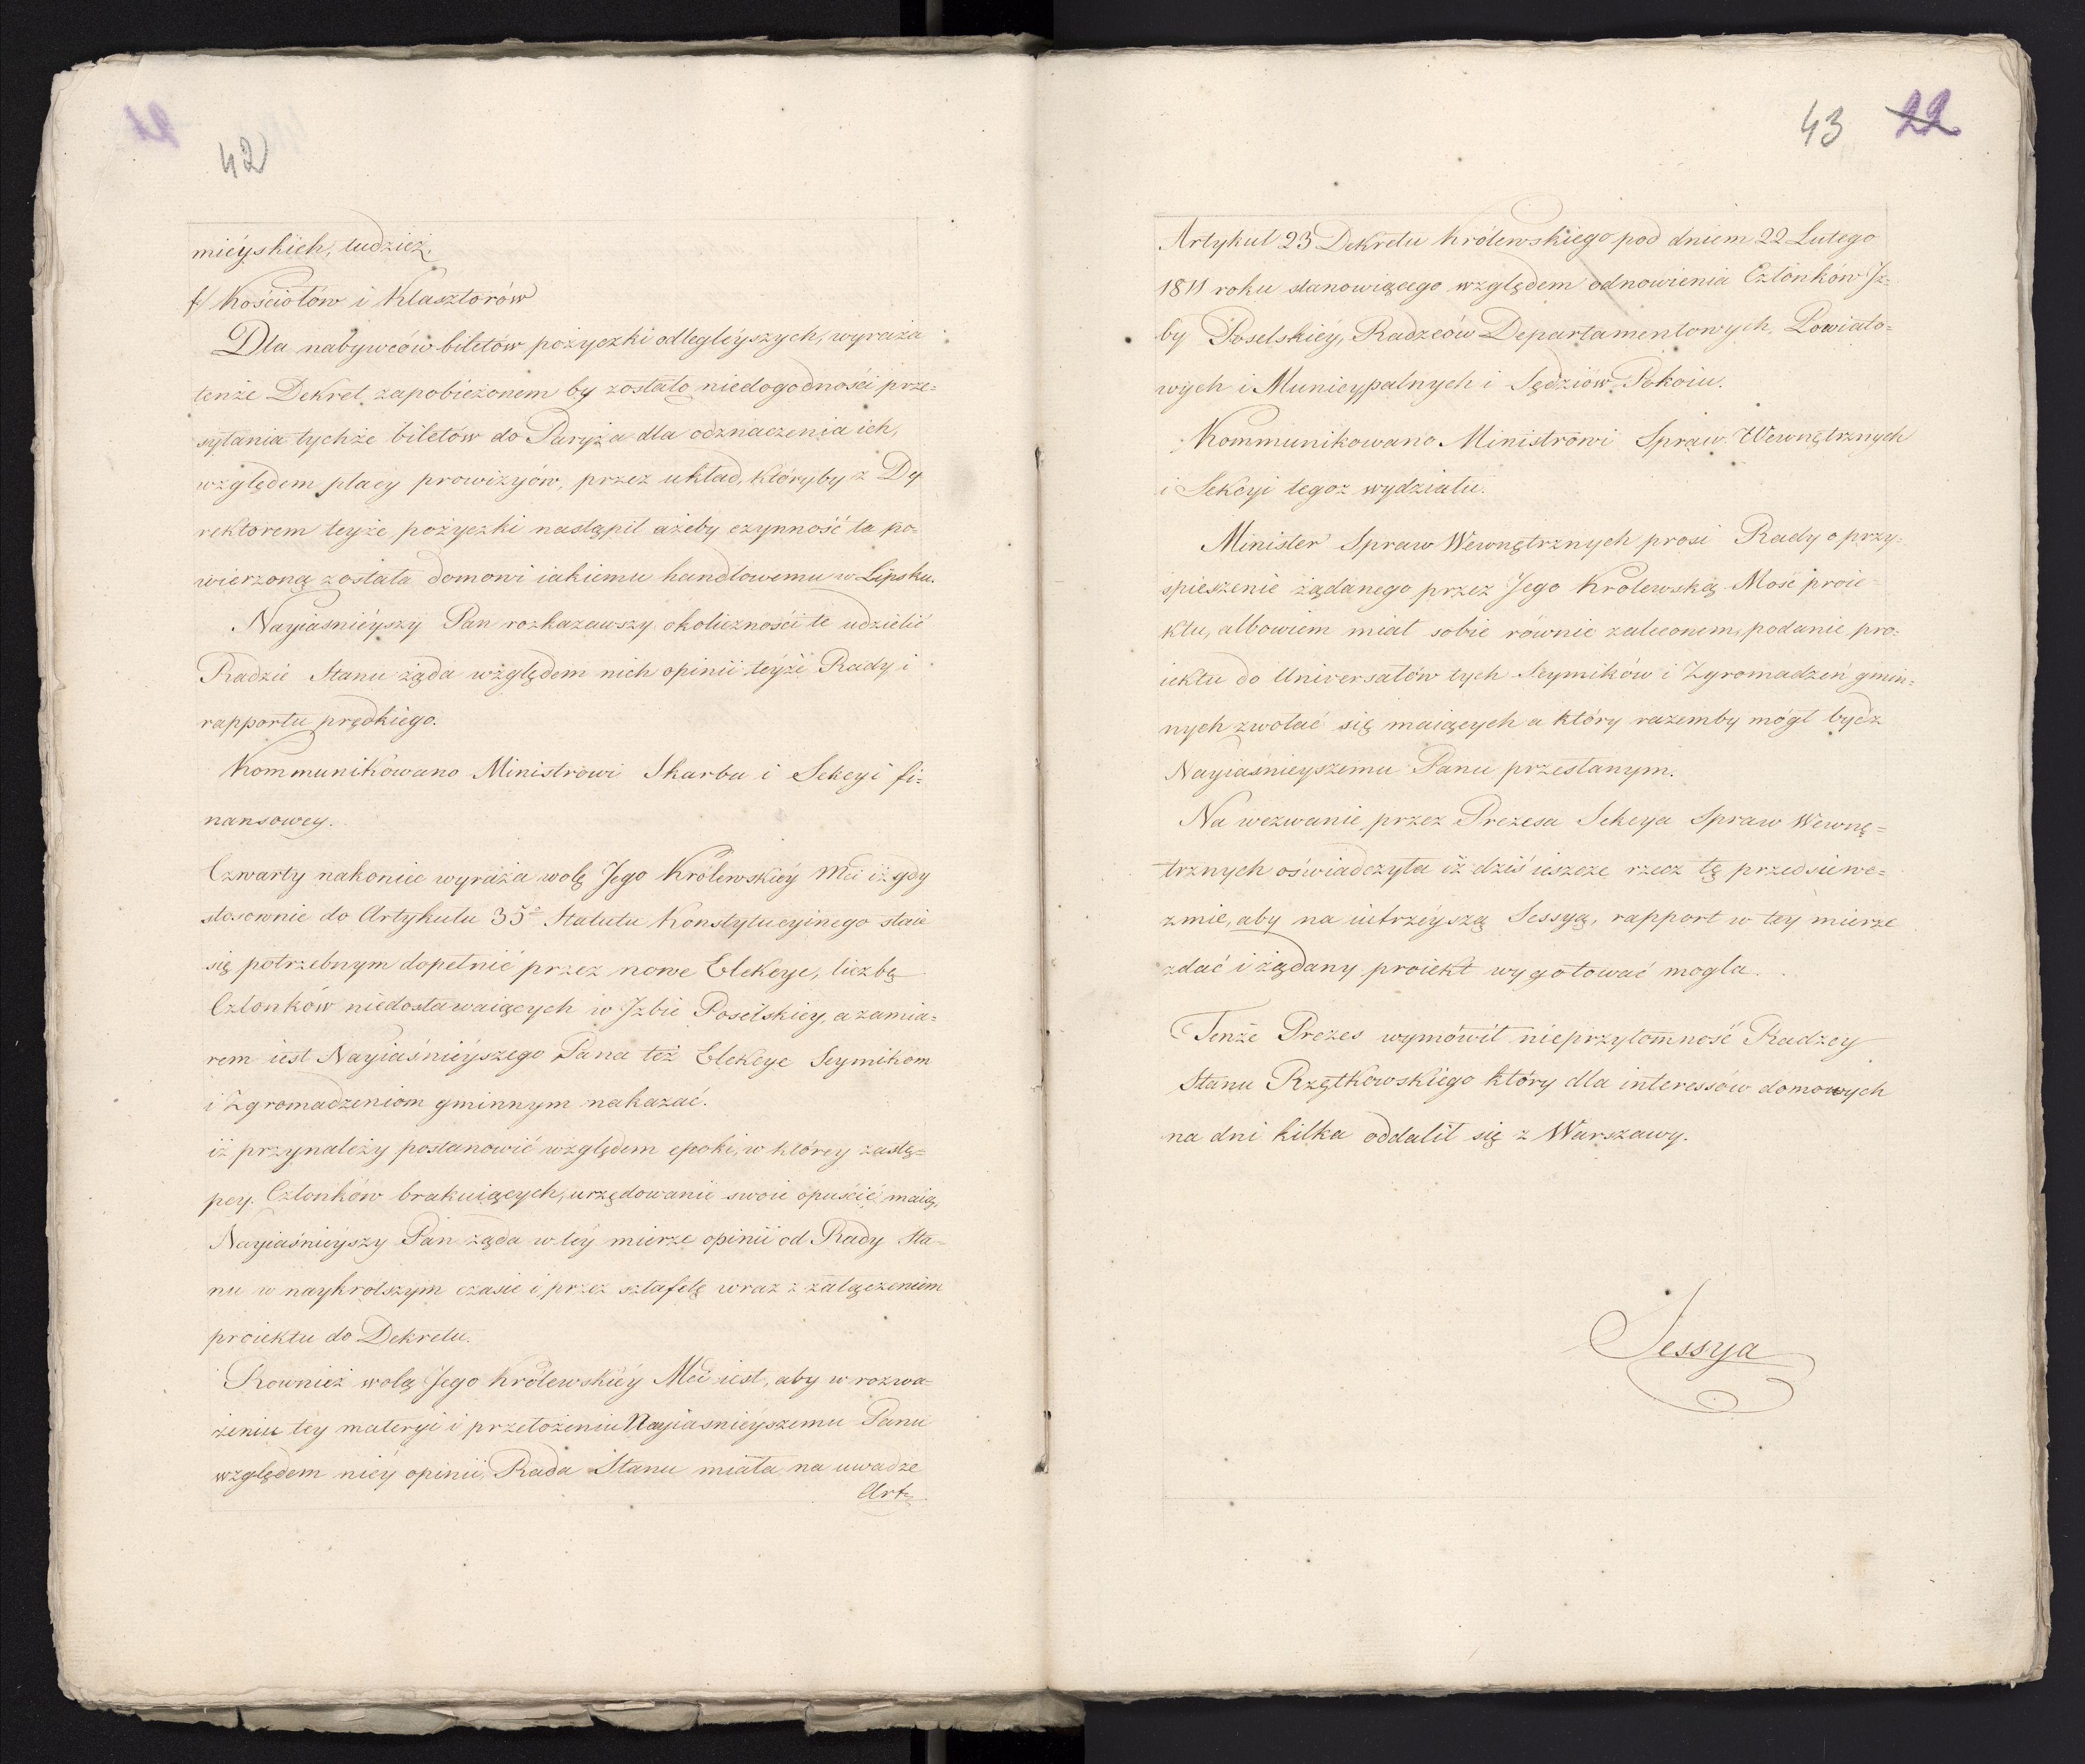 42
mieyskich, tudzież,
f/ Kościołów i Klasztorów
Dla nabywców biletów pożyczki odległeyszych, wyraża
tenże Dekret zapobieżonem by zostało niedogodności prze=
syłania tychże biletów do Paryża dla odznaczenia ich,
względem płacy prowizyów, przez układ, któryby z Dy
rektorem teyże pożyczki nastąpił ażeby czynność ta po=
wierzoną została domowi iakiemu handlowemu w Lipsku.
Nayiaśnieyszy Pan rozkazawszy okoliczności te udzielić
Radzie Stanu żąda względem nich opinii teyże Rady i
rapportu prędkiego.
Kommunikowano Ministrowi Skarbu i Sekcyi fi=
nansowey.
Czwarty nakoniec wyraża wolę Jego Królewskiey Mci iż gdy
stosownie do Artykułu 35º Statutu Konstytucyinego staie
się potrzebnym dopełnić przez nowe Elekcye, liczbę
Członków niedostawaiących w Jzbie Poselskiey, a zamia=
rem iest Nayiaśnieyszego Pana też Elekcye Seymikom
i Zgromadzeniom gminnym nakazać.
iż przynależy postanowić względem epoki, w którey zastę=
pcy Członków brakuiących, urzędowanie swoie opuścić maią,
Nayiaśnieyszy Pan żąda w tey mierze opinii od Rady Sta=
nu w naykrotszym czasie i przez sztafetę wraz z załączeniem
proiektu do Dekretu.
Rownież wolą Jego Królewskiey Mci iest, aby w rozwa=
żeniu tey materyi i przełożeniu Nayiasnieyszemu Panu
względem niey opinii, Rada Stanu miała na uwadze
Art:
43 22
Artykuł 23 Dekretu Królewskiego pod dniem 22 Lutego
1811 roku stanowiącego względem odnowienia Członków Jz=
by Poselskiey, Radzców Departamentowych, Powiato=
wych i Municypalnych i Sędziów Pokoiu.
Kommunikowano Ministrowi Spraw Wewnętrznych
i Sekcyi tegoż wydziału.
Minister Spraw Wewnętrznych prosi Rady o przy=
spieszenie żądanego przez Jego Królewską Mość proie=
ktu, albowiem miał sobie równie zaleconem, podanie pro=
iektu do Uniwersałów tych Seymików i Zgromadzeń gmin=
nych zwołać się maiących a który razemby mógł bydz
Nayiaśnieyszemu Panu przesłanym.
Na wezwanie przez Prezesa Sekcya Spraw Wewnę=
trznych oświadczyła iż dziś ieszcze rzecz tę przedsiewe=
zmie, aby na iutrzeyszą Sessyą, rapport w tey mierze
zdać i żądany proiekt wygotować mogła.
Tenże Prezes wymówił nieprzytomność Radzcy
Stanu Rzętkowskiego który dla interessów domowych
na dni kilka oddalił się z Warszawy.
Sessya